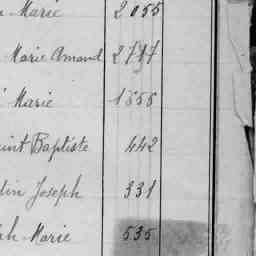 Marie 2055
Marie Amand 2717
Marie 1555
Baptiste 442
Joseph 331
Marie 535